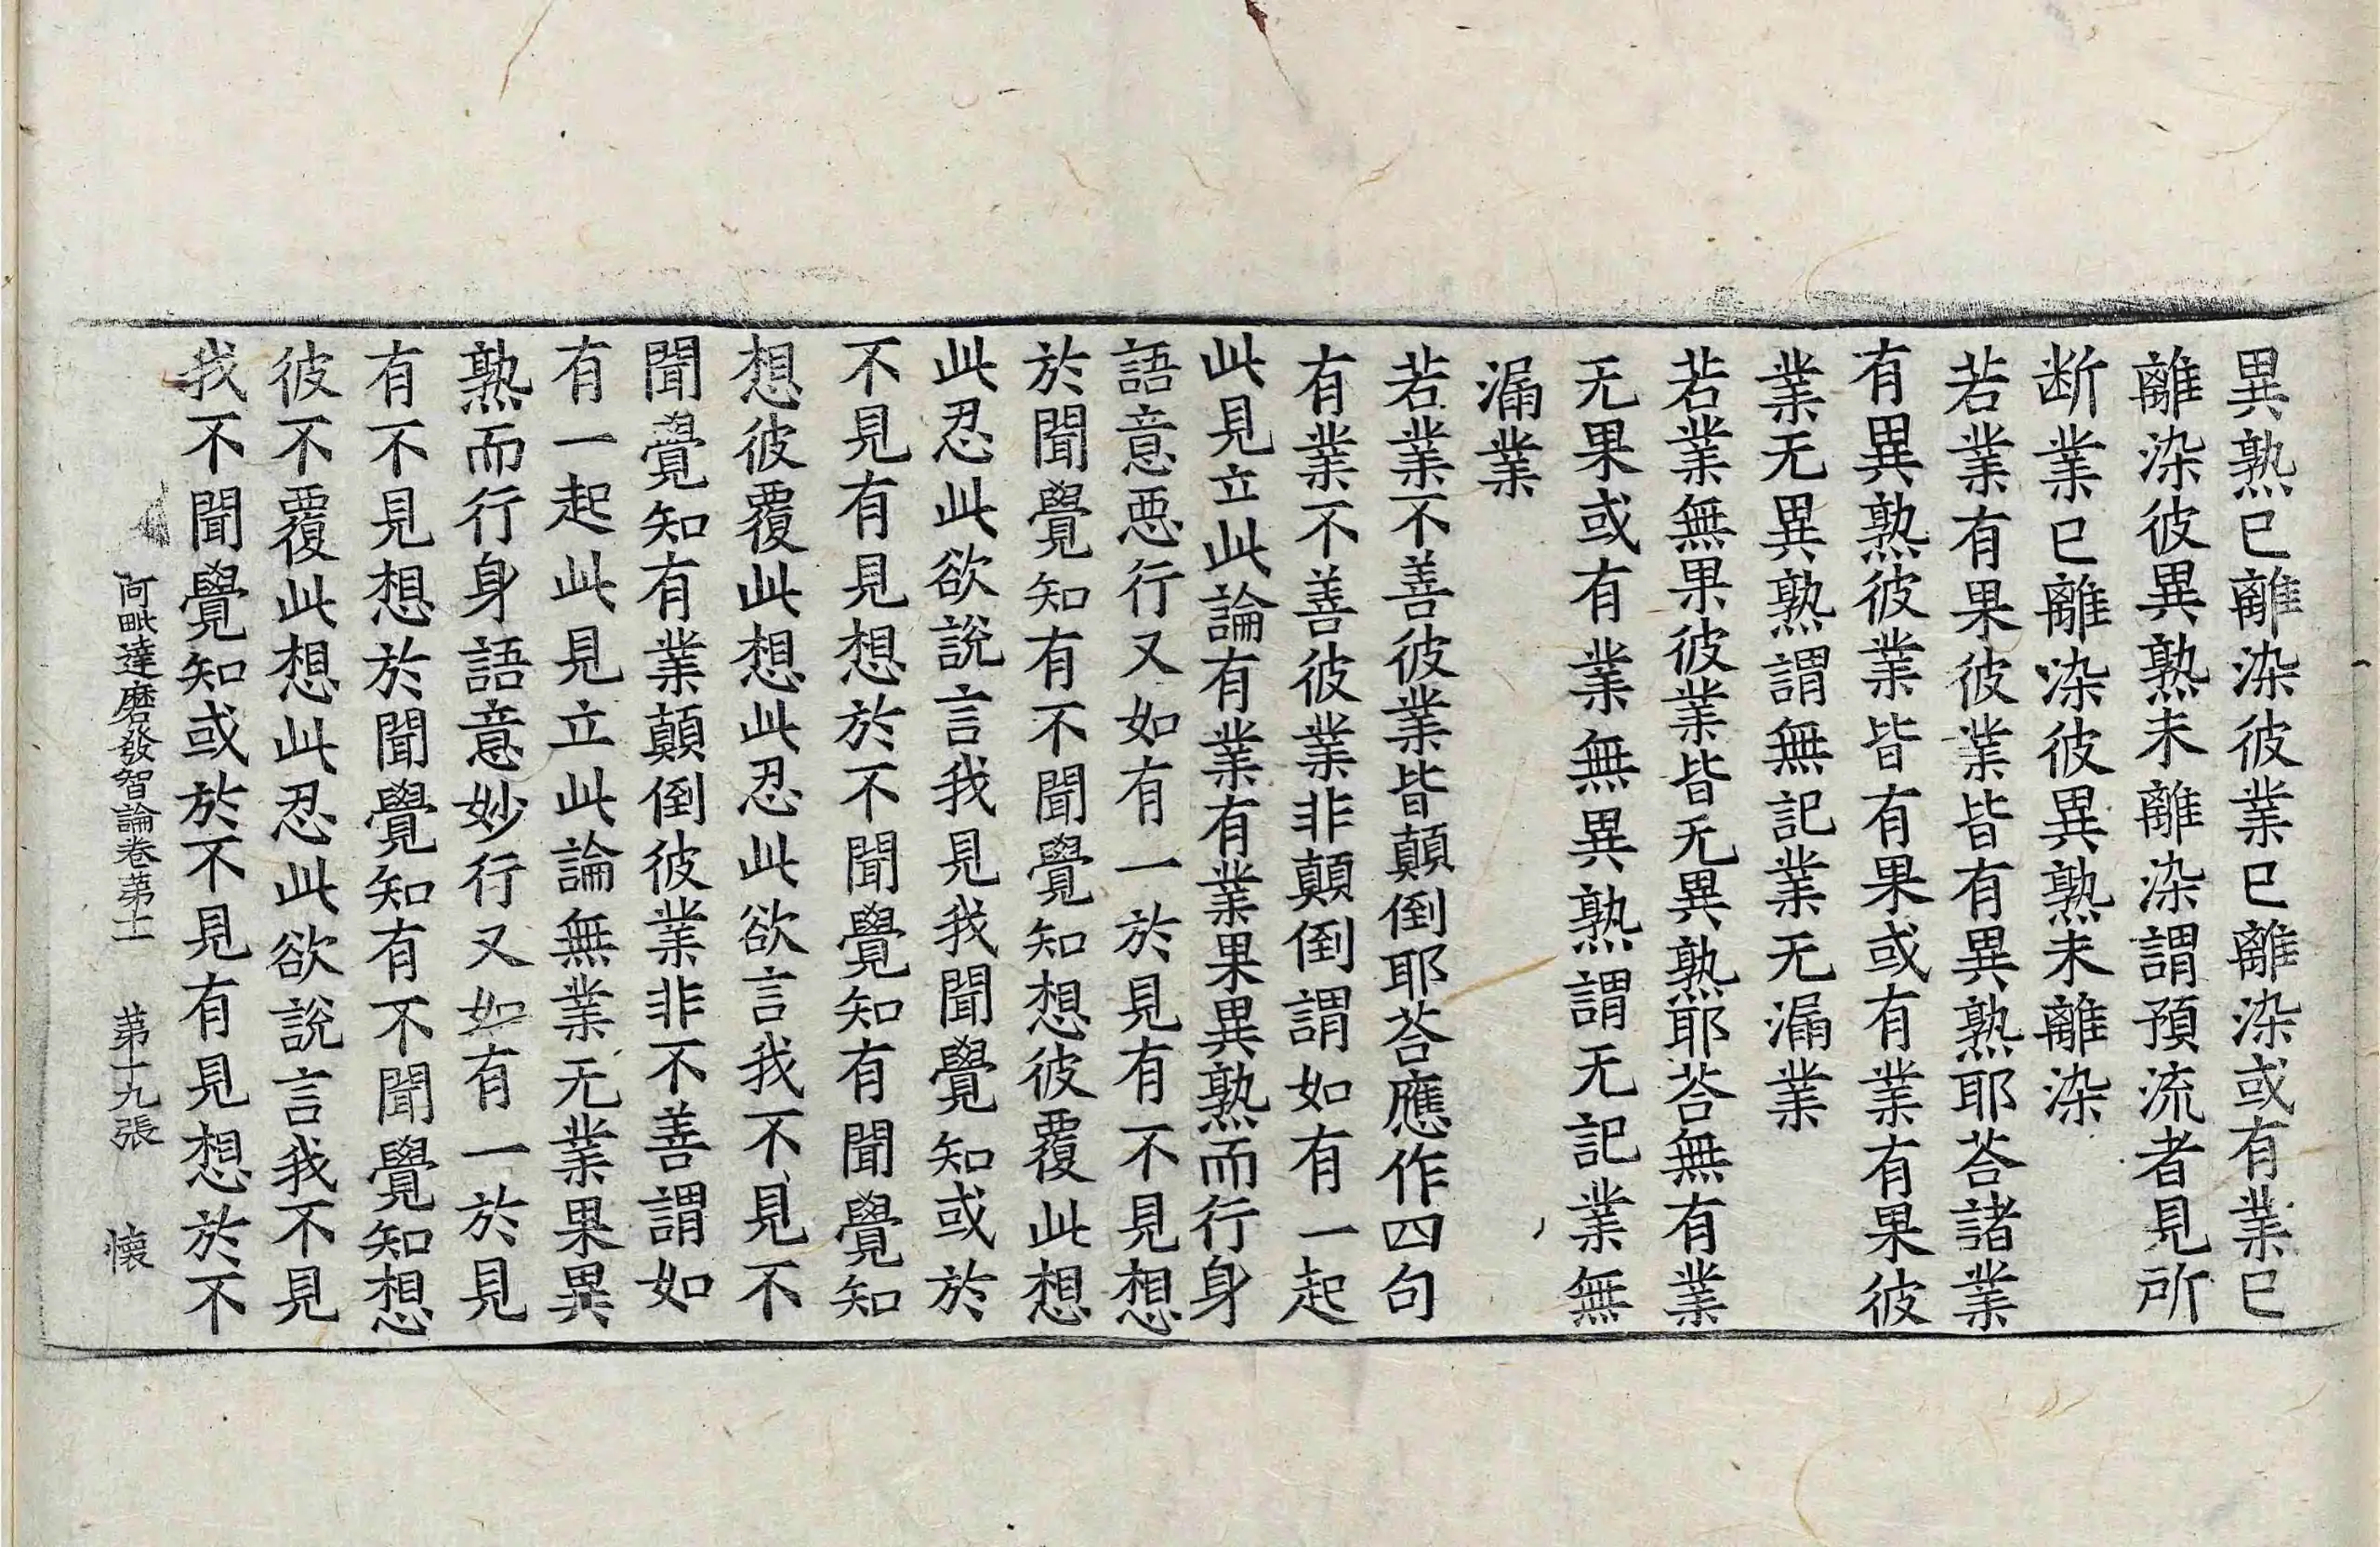 異熟已離染彼業已離染或有業已
離染彼異熟未離染謂預流者見所
断業已離染彼異熟未離染
若業有果彼業皆有異熟耶荅諸業
有異熟彼業皆有果或有業有果彼
業无異熟謂無記業无漏業
若業無果彼業皆无異熟耶荅無有業
无果或有業無異熟謂无記業無
漏業
若業不善彼業皆顛倒耶荅應作四句
有業不善彼業非顛倒謂如有一起
此見立此論有業有業果異熟而行身
語意悪行又如有一於見有不見想
於聞覺知有不聞覺知想彼覆此想
此忍此欲說言我見我聞覺知或於
不見有見想於不聞覺知有聞覺知
想彼覆此想此忍此欲言我不見不
聞覺知有業顛倒彼業非不善謂如
有一起此見立此論無業无業果異
熟而行身語意妙行又如有一於見
有不見想於聞覺知有不聞覺知想
彼不覆此想此忍此欲說言我不見
我不聞覺知或於不見有見想於不
阿毗達磨發智論卷苐十一 苐十九張 懐